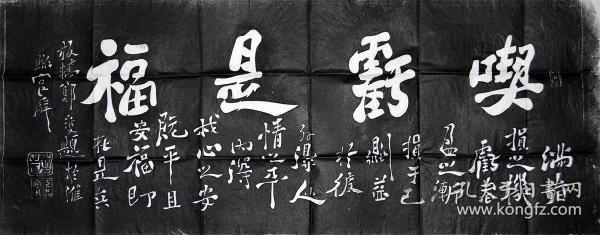 喫虧是福
滿者
損之機
虧者
盈之漸
損于己
則益
於彼
外得人
情之平
內得
我心之安
既平且
安福即
在是矣
板橋鄭燮題於濰
縣官
孔夫子旧书网
www.kongfz.com